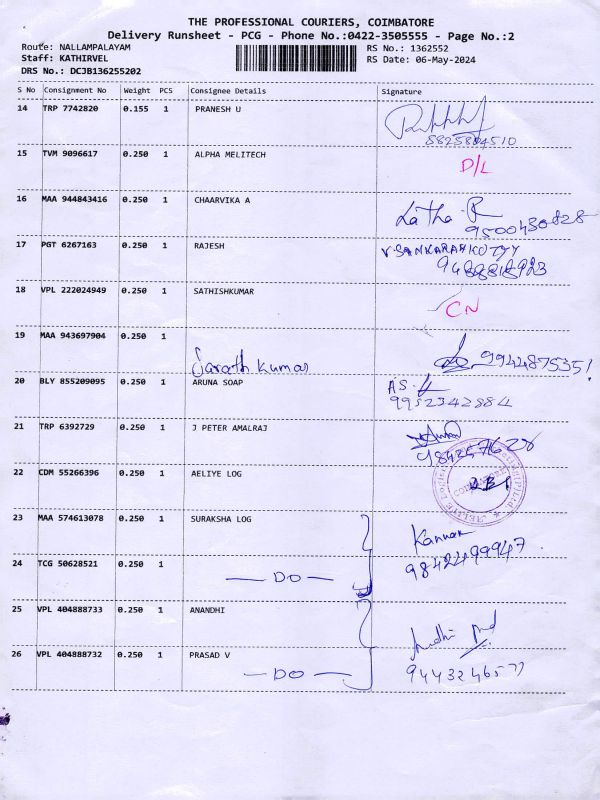 THE PROFESSIONAL COURIERS, COIMBATORE
Delivery Runsheet - PCG - Phone No.:0422-3505555 - Page No.:2
Route: NALLAMPALAYAM RS No.: 1362552
Staff: KATHIRVEL RS Date: 06-May-2024
DRS No.: DCJB136255202
S No Consignment No Weight PCS Consignee Details Signature
14 TRP 7742820 0.155 1 PRANESH U
15 TVM 9096617 0.250 1 ALPHA MELITECH D/L
16 MAA 944843416 0.250 1 CHAARVIKA A Latha R
9500430828
17 PGT 6267163 0.250 1 RAJESH
18 VPL 222024949 0.250 1 SATHISHKUMAR CN
19 MAA 943697904 0.250 1
Sarath Kumar
20 BLY 855209095 0.250 1 ARUNA SOAP AS
9952342884
21 TRP 6392729 0.250 1 J PETER AMALRAJ
9842576228
22 CDM 55266396 0.250 1 AELIYE LOG
23 MAA 574613078 0.250 1 SURAKSHA LOG Kannan
24 TCG 50628521 0.250 1 9842499947
— DO —
25 VPL 404888733 0.250 1 ANANDHI
26 VPL 404888732 0.250 1 PRASAD V
— DO —